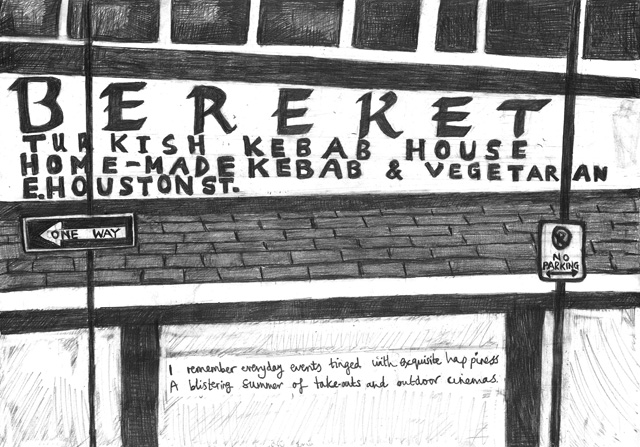 BEREKET
TURKISH KEBAB HOUSE
HOME-MADE KEBAB & VEGETARIAN
E.HOUSTON ST.
ONE WAY
P
NO
PARKING
I remember everyday events tinged with exquisite happiness
A blistering summer of take-outs and outdoor cinemas.